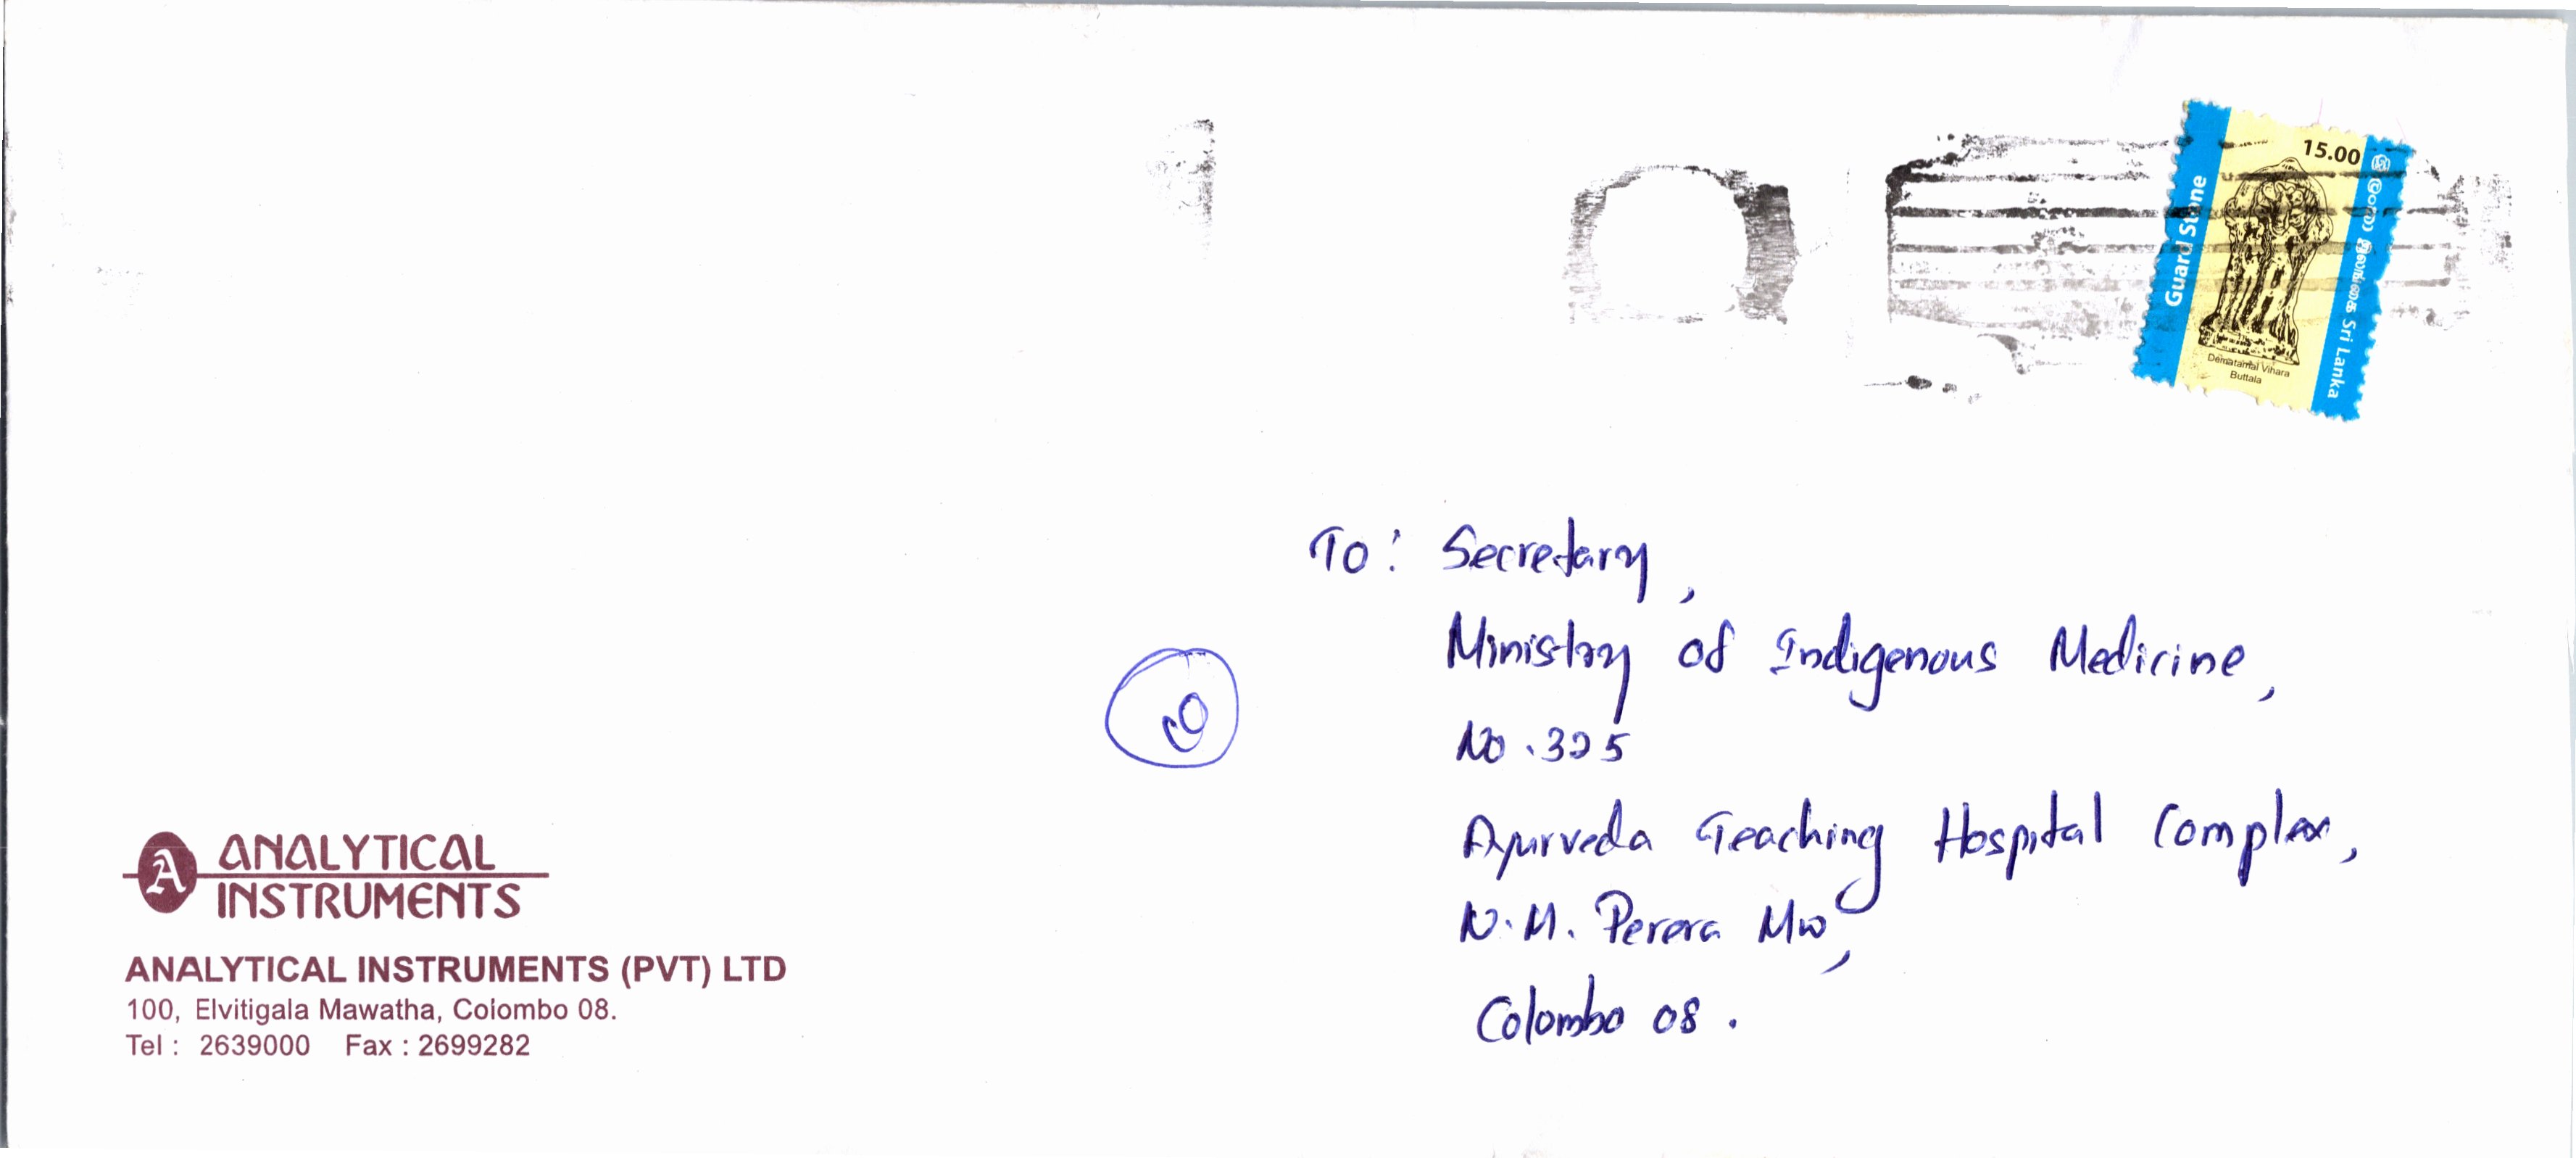 15.00
Guard Stone
Sri Lanka
Dematamal Vihara
Buttala
To: Secretary,
Ministry of Indigenous Medicine,
No. 325
Ayurveda Teaching Hospital Complex,
N.M. Perera Mw,
Colombo 08.
A
ANALYTICAL
INSTRUMENTS
ANALYTICAL INSTRUMENTS (PVT) LTD
100, Elvitigala Mawatha, Colombo 08.
Tel : 2639000 Fax : 2699282